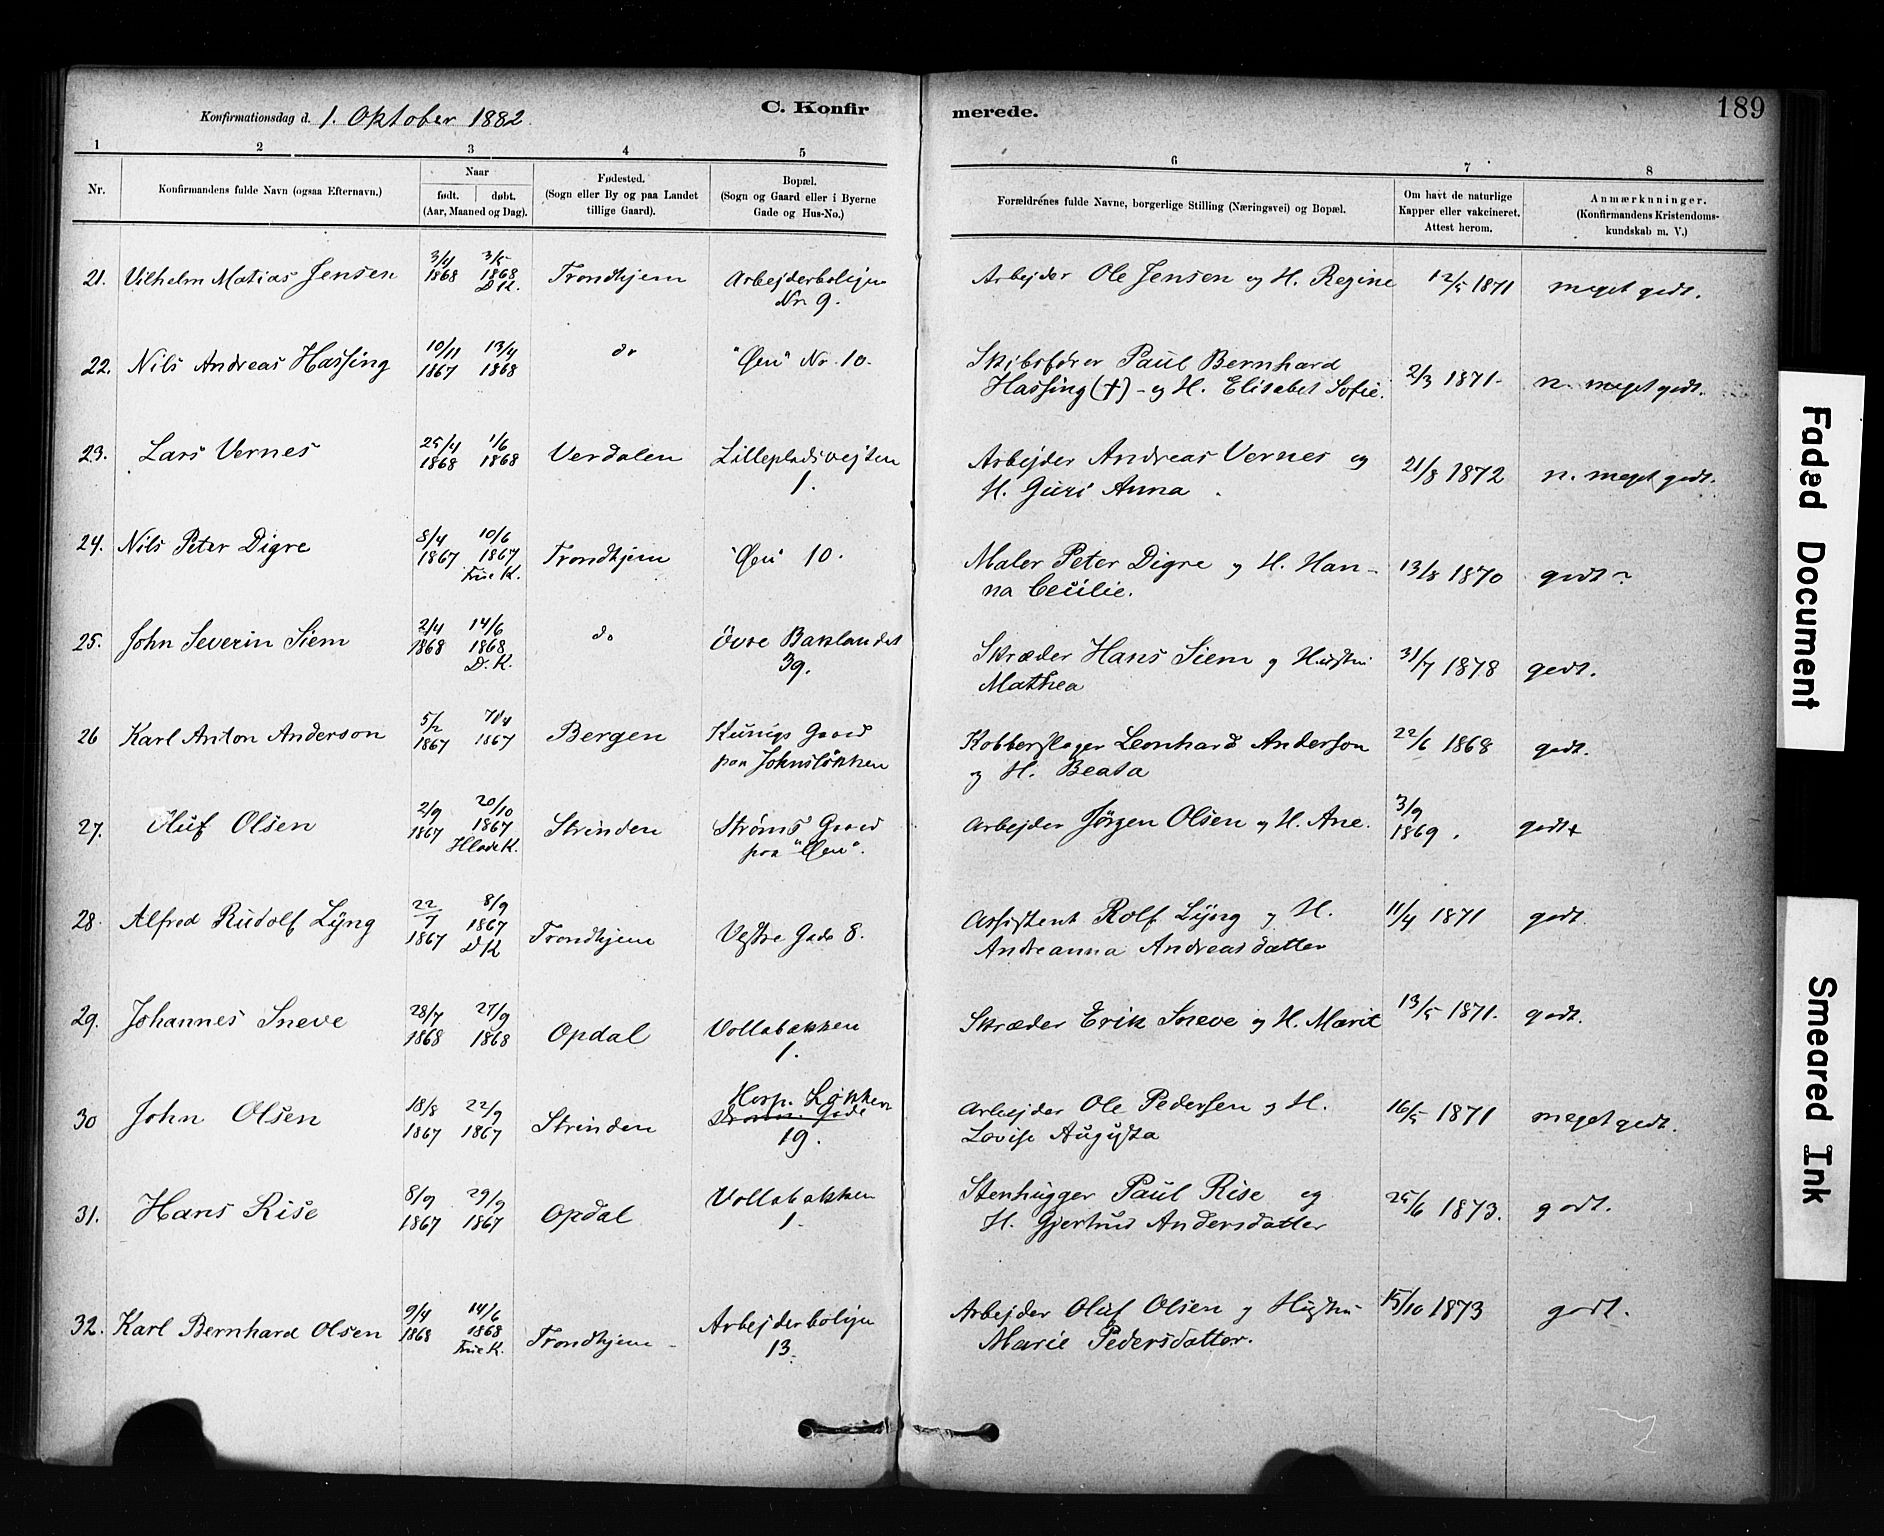 Konfirmationsdag d. 1. Oktober 1882.
C. Konfirmerede.
189
1 2 3 4 5 6 7 8
Nr.
Konfirmandens fulde Navn (ogsaa Efternavn.)
Naar
født. døbt.
(Aar, Maaned og Dag).
Fødested.
(Sogn eller By og paa Landet
tillige Gaard).
Bopæl.
(Sogn og Gaard eller i Byerne
Gade og Hus-No.)
Forældrenes fulde Navne, borgerlige Stilling (Næringsvei) og Bopæl.
Om havt de naturlige
Kapper eller vakcineret.
Attest herom.
Anmærkninger.
(Konfirmandens Kristendoms-
kundskab m. V.)
21. Vilhelm Matias Jensen
3/4 1868
3/5 1868 D.K.
Trondhjem
Arbejderbolijer
No. 9.
Arbejder Ole Jensen og H. Regine
12/5 1871
meget godt.
22. Nils Andreas Hassing
10/11 1867
13/4 1868
do
"Øen" Nr. 10.
Skibsfører Paul Bernhard
Hassing (†) - og H. Elisabet Sofie.
2/3 1871.
n. meget godt.
23. Lars Vernes
25/4 1868
1/6 1868
Verdalen
Lillepladsvejten
1.
Arbejder Andreas Vernes og
H. Guri Anna.
21/8 1872
n. meget godt.
24. Nils Peter Digre
8/4 1867
10/6 1867 Frue K.
Trondhjem
"Øen" 10.
Maler Peter Digre og H. Han-
na Cecilie.
13/8 1870
godt
25. John Severin Siem
2/4 1868
14/6 1868 D.K.
do
Övre Baklandet
39.
Skræder Hans Siem og Hustru
Mathea
31/7 1878
godt.
26 Karl Anton Anderson
5/2 1867
1867
Bergen
Gaard
paa Johnsløkken
Kobberslager Leonhard Anderson
og H. Beata
22/6 1868
godt.
27. Oluf Olsen
2/9 1867
20/10 1867 Hlade K.
Strinden
Strøms Gaard
paa "Øen".
Arbejder Jørgen Olsen og H. Ane.
3/9
1869.
godt+
28. Alfred Rudolf Lÿng
22/7 1867
8/9 1867 D/K
Trondhjem
Vestre Gade 8.
Assistent Rolf Lÿng og H.
Andreanna Andreasdatter
11/4 1871
godt.
29. Johannes Sneve
28/7 1868
27/9 1868
Opdal
Vollabakken
1.
Skræder Erik Sneve og H. Marit
13/5 1871.
godt.
30 John Olsen
18/8 1867
22/9 1867
Strinden
Hosp. Løkken
Gade
19.
Arbejder Ole Pedersen og H.
Lovise Augusta
16/5 1871
meget godt.
31. Hans Rise
8/9 1867
29/9 1867
Opdal
Vollabakken
1.
Stenhugger Paul Rise og
H. Gjertrud Andersdatter
25/6 1873.
godt.
32. Karl Bernhard Olsen
9/4 1868
14/6 1868 Frue K.
Trondhjem
Arbejderbolijer
13.
Arbejder Oluf Olsen og Hustru
Marie Pedersdatter.
15/10 1873
godt.
Faded Document
Smeared Ink